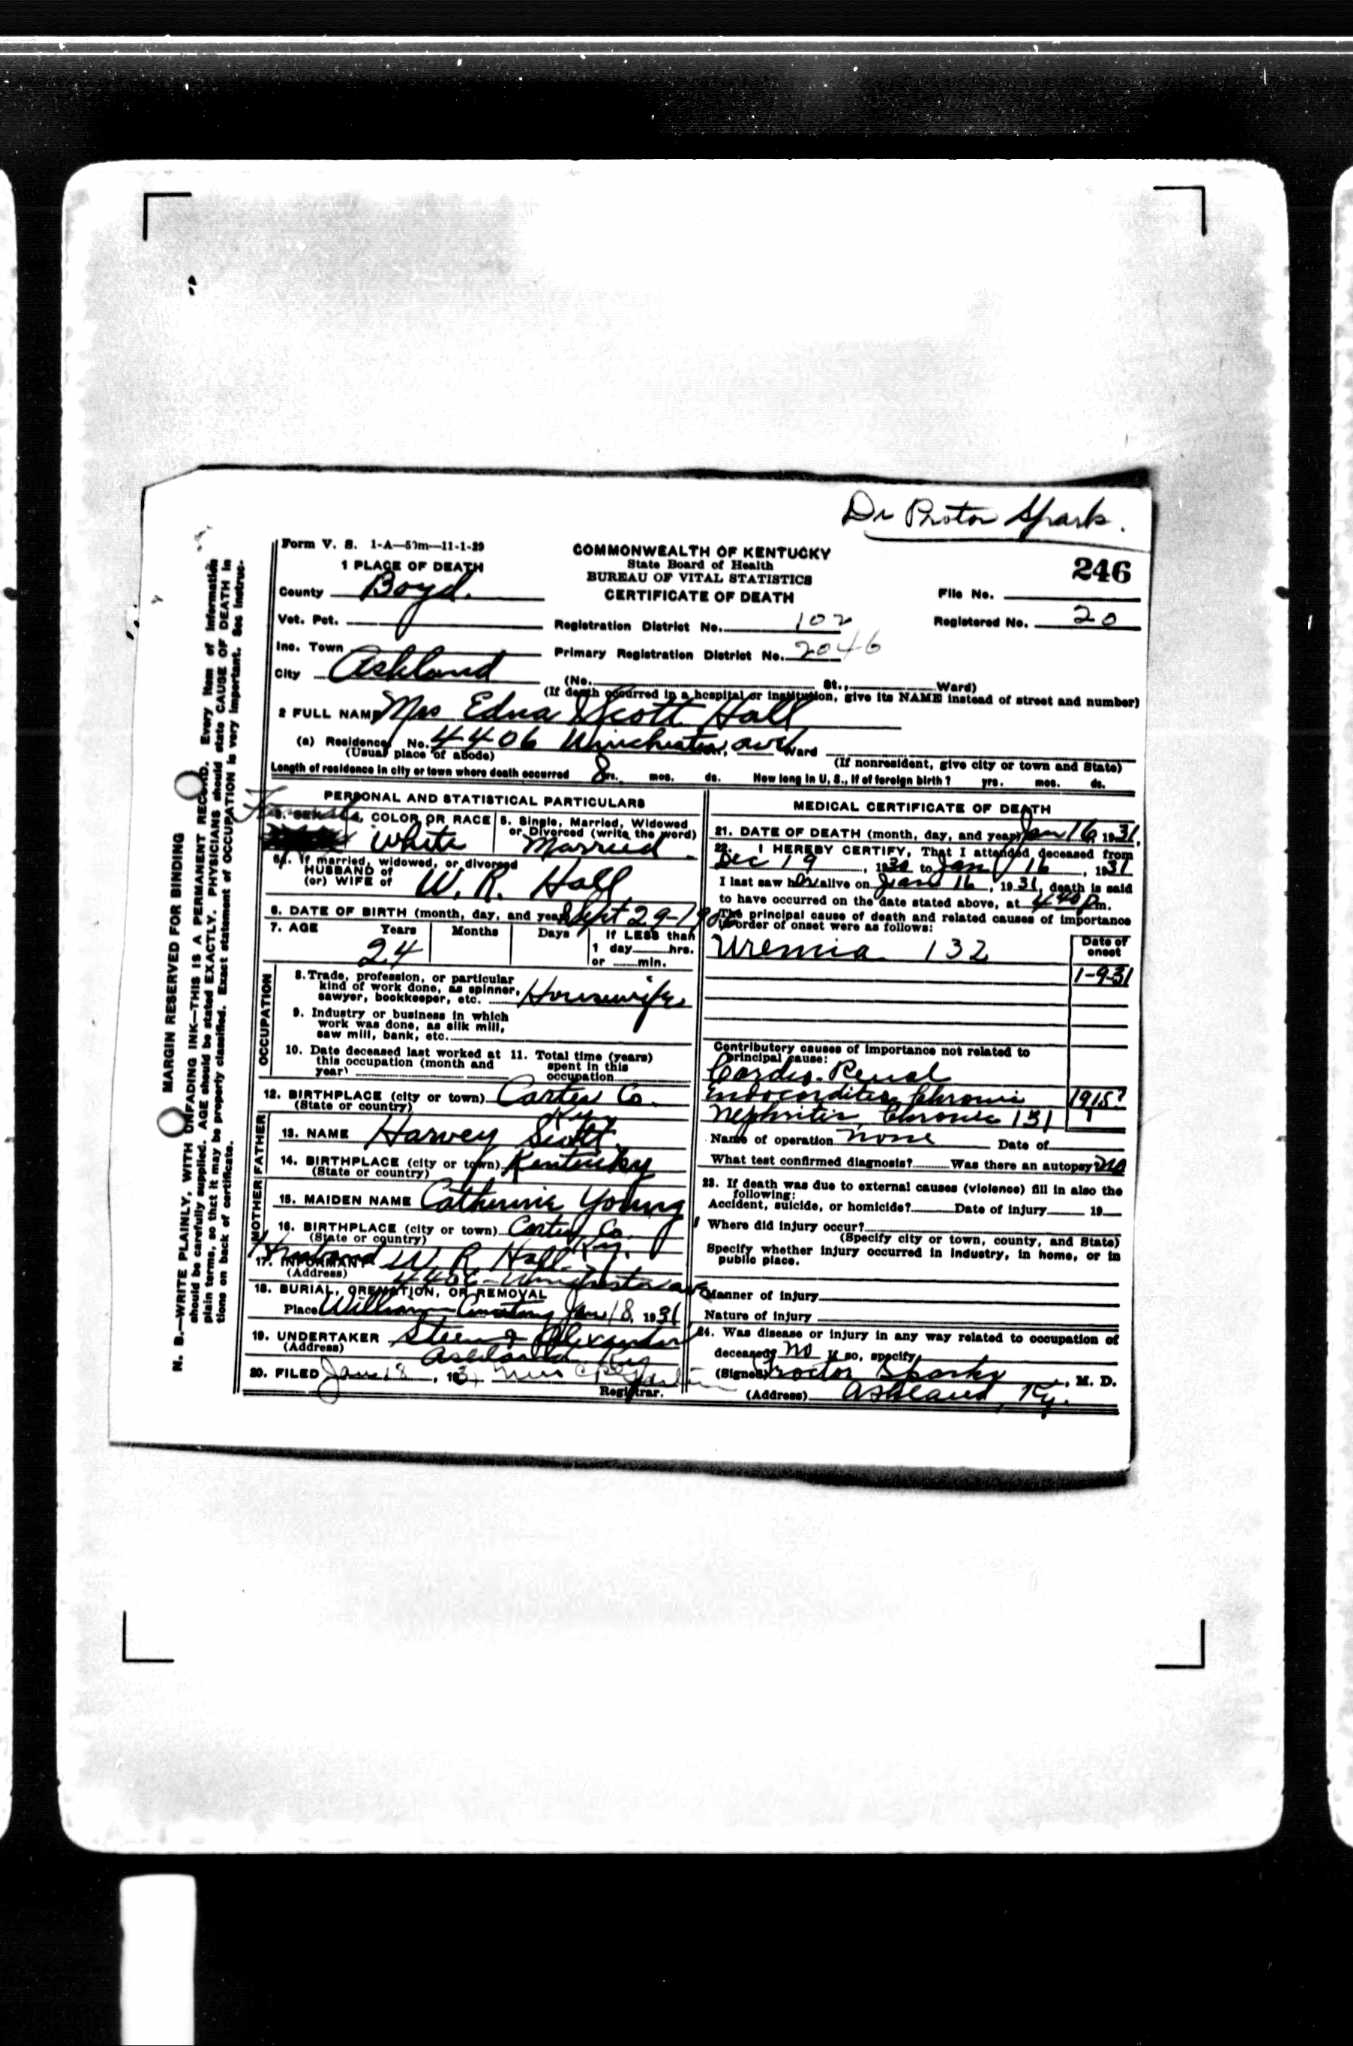 Dr Proctor Sparks.
Form V. S. 1-A—50m—11-1-29
COMMONWEALTH OF KENTUCKY
State Board of Health
BUREAU OF VITAL STATISTICS
CERTIFICATE OF DEATH
246
1 PLACE OF DEATH
County Boyd.
File No.
Vot. Pct.
Registration District No. 102
Registered No. 20
Inc. Town
Primary Registration District No. 2046
City Ashland
(No. St., Ward)
(If death occurred in a hospital or institution, give its NAME instead of street and number)
2 FULL NAME Mrs Edna Scott Hall
(a) Residence, No. 4406 Winchester, ave Ward
(Usual place of abode)
(If nonresident, give city or town and State)
Length of residence in city or town where death occurred 8 yrs. mos. ds. How long in U. S., if of foreign birth? yrs. mos. ds.
PERSONAL AND STATISTICAL PARTICULARS
Female
3. SEX 4. COLOR OR RACE 5. Single, Married, Widowed
or Divorced (write the word)
White Married
5A. If married, widowed, or divorced
HUSBAND of
(or) WIFE of W. R. Hall
6. DATE OF BIRTH (month, day, and year) Sept 29-1906
7. AGE Years Months Days If LESS than
1 day hrs.
or min.
24
OCCUPATION
8. Trade, profession, or particular
kind of work done, as spinner,
sawyer, bookkeeper, etc. Housewife
9. Industry or business in which
work was done, as silk mill,
saw mill, bank, etc.
10. Date deceased last worked at
this occupation (month and
year)
11. Total time (years)
spent in this
occupation
12. BIRTHPLACE (city or town) Carter Co.
(State or country) Ky.
FATHER
13. NAME Harvey Scott.
14. BIRTHPLACE (city or town) Kentucky
(State or country)
MOTHER
15. MAIDEN NAME Catherine Young
16. BIRTHPLACE (city or town) Carter Co.
(State or country) Ky.
Husband
17. INFORMANT W R Hall
(Address) 4406 - Winchester ave
18. BURIAL, CREMATION, OR REMOVAL
Place William Cemetery Jan 18, 1931
19. UNDERTAKER Steen & Alexander
(Address) Ashland Ky
20. FILED Jan 18, 1931 Mrs
Registrar.
MEDICAL CERTIFICATE OF DEATH
21. DATE OF DEATH (month, day, and year) Jan 16, 1931,
22. I HEREBY CERTIFY, That I attended deceased from
Dec 19, 1930 to Jan 16, 1931
I last saw her alive on Jan 16, 1931, death is said
to have occurred on the date stated above, at 4 40 Pm.
The principal cause of death and related causes of importance
in order of onset were as follows:
Uremia 132
Date of
onset
1-9-31
Contributory causes of importance not related to
principal cause:
Cardio-Renal
Endocarditis, Chronic 1915?
Nephritis, Chronic 131
Name of operation none Date of
What test confirmed diagnosis? Was there an autopsy? no
23. If death was due to external causes (violence) fill in also the
following:
Accident, suicide, or homicide? Date of injury 19
Where did injury occur?
(Specify city or town, county, and State)
Specify whether injury occurred in industry, in home, or in
public place.
Manner of injury
Nature of injury
24. Was disease or injury in any way related to occupation of
deceased? no If so, specify
(Signed) Proctor Sparks, M. D.
(Address) Ashland, Ky.
MARGIN RESERVED FOR BINDING
N. B.—WRITE PLAINLY, WITH UNFADING INK—THIS IS A PERMANENT RECORD. Every item of information
should be carefully supplied. AGE should be stated EXACTLY. PHYSICIANS should state CAUSE OF DEATH in
plain terms, so that it may be properly classified. Exact statement of OCCUPATION is very important. See instruc-
tions on back of certificate.